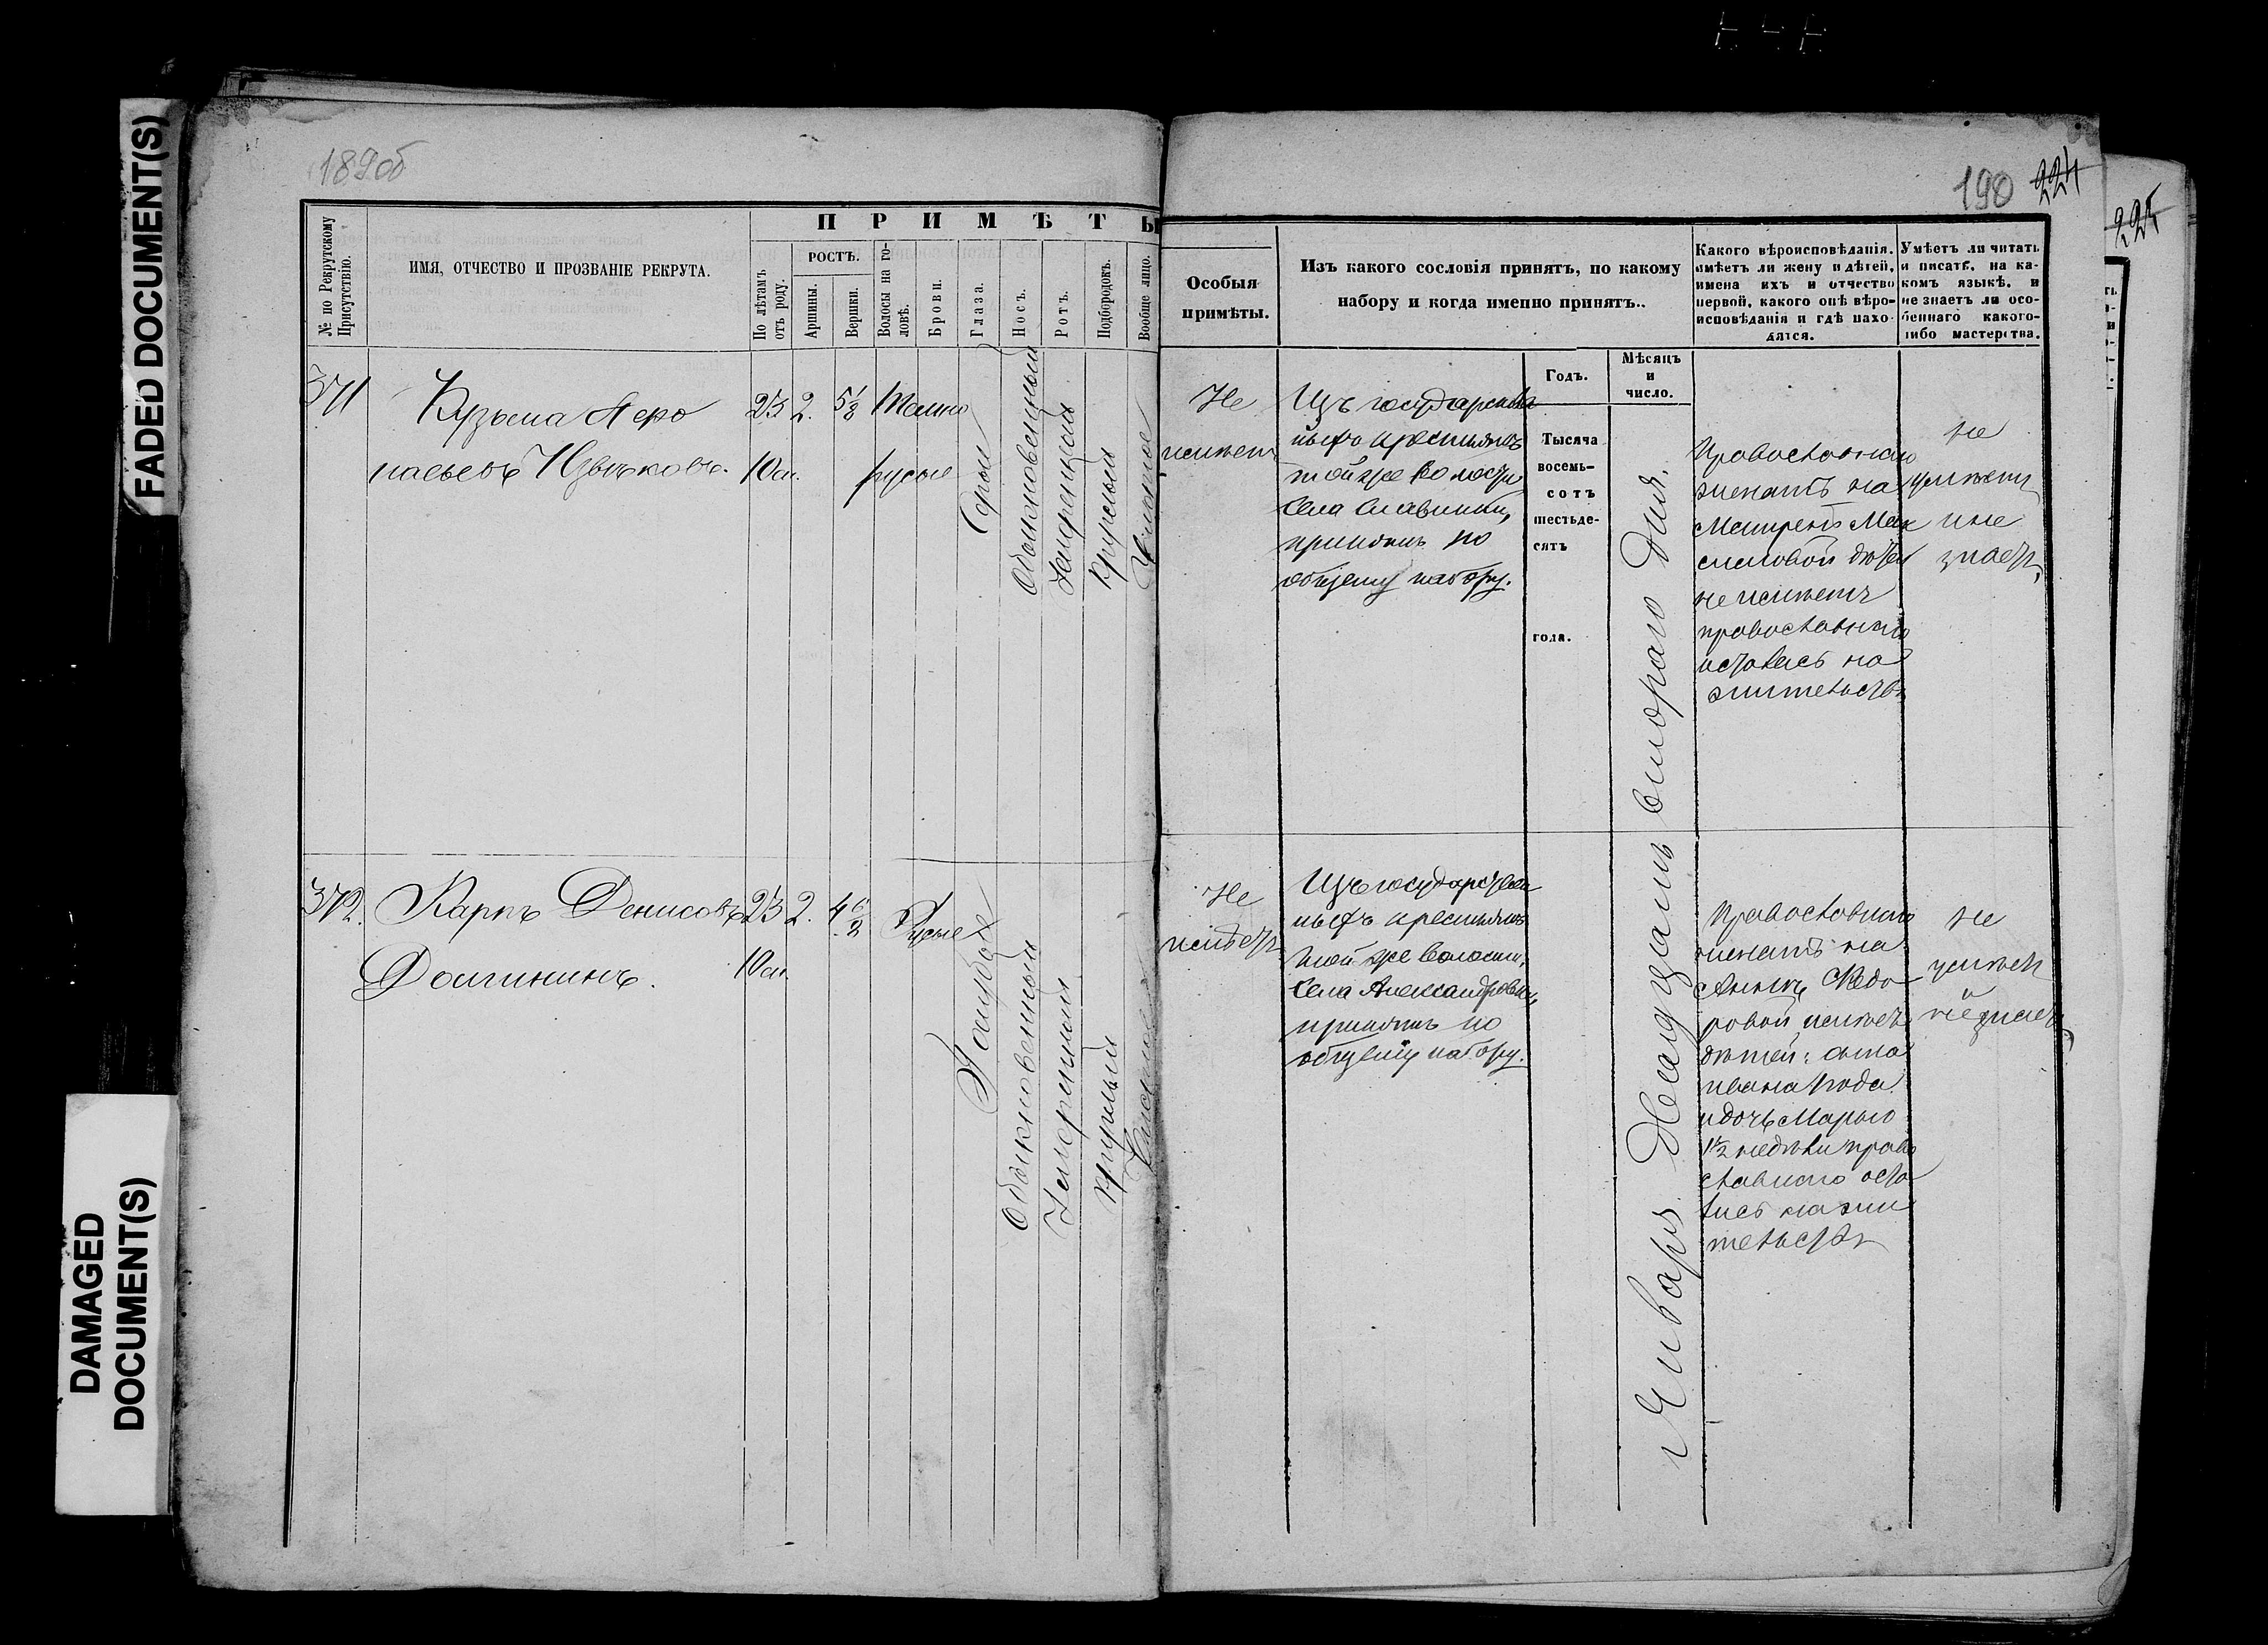 FADED DOCUMENT(S)
DAMAGED
DOCUMENT(S)
189об
190 224
225
№ по Рекрутскому
Присутствію.
ИМЯ, ОТЧЕСТВО И ПРОЗВАНІЕ РЕКРУТА.
ПРИМѢТЫ
По лѣтамъ
отъ роду.
РОСТЪ.
Аршины.
Вершки.
Волосы на го-
ловѣ.
Брови.
Глаза.
Носъ.
Ротъ.
Подбородокъ.
Вообще лицо.
Особыя
примѣты.
Изъ какого сословія принятъ, по какому
набору и когда именно принятъ.
Годъ.
Мѣсяцъ
и
число.
Какого вѣроисповѣданія,
имѣетъ ли жену и дѣтей,
имена ихъ и отчество
первой, какого онѣ вѣро-
исповѣданія и гдѣ нахо-
дятся.
Умѣетъ ли читать
и писать, на ка-
комъ языкѣ, и
не знаетъ ли осо-
беннаго какого-
либо мастерства.
371
Кузьма
23 2. 5
10 м.
Темно
русые
Серые
Обыкновенный
Умеренный
Круглый
Чистое
Не
имеет
Изъ государствен
ныхъ крестьянъ
той же волости
села Славинки,
принятъ по
общему набору.
Тысяча
восемь-
сотъ
шестьде-
сятъ
года.
Января Двадцать втораго дня.
Православнаго
женатъ на
Матренѣ Мак
симовой детей
не имеетъ
православнаго
осталась на
жительстве
не
умѣетъ
и не
знаетъ
372.
Карпъ Денисовъ
Долгининъ.
23 2. 4
10 м.
Русые
Голубые
Обыкновенный
Умеренный
Круглый
Чистое
Не
имѣетъ
Изъ государствен
ныхъ крестьянъ
той же волости,
села Александровки,
принятъ по
общему набору.
Православнаго
женатъ на
Аннѣ Федо
ровой имѣетъ
дѣтей: сына
Ивана 1 года
и дочь Марью
1 1/2 недѣли право
славнаго оста
лись на жи
тельствѣ
не
умѣетъ
и
не знаетъ